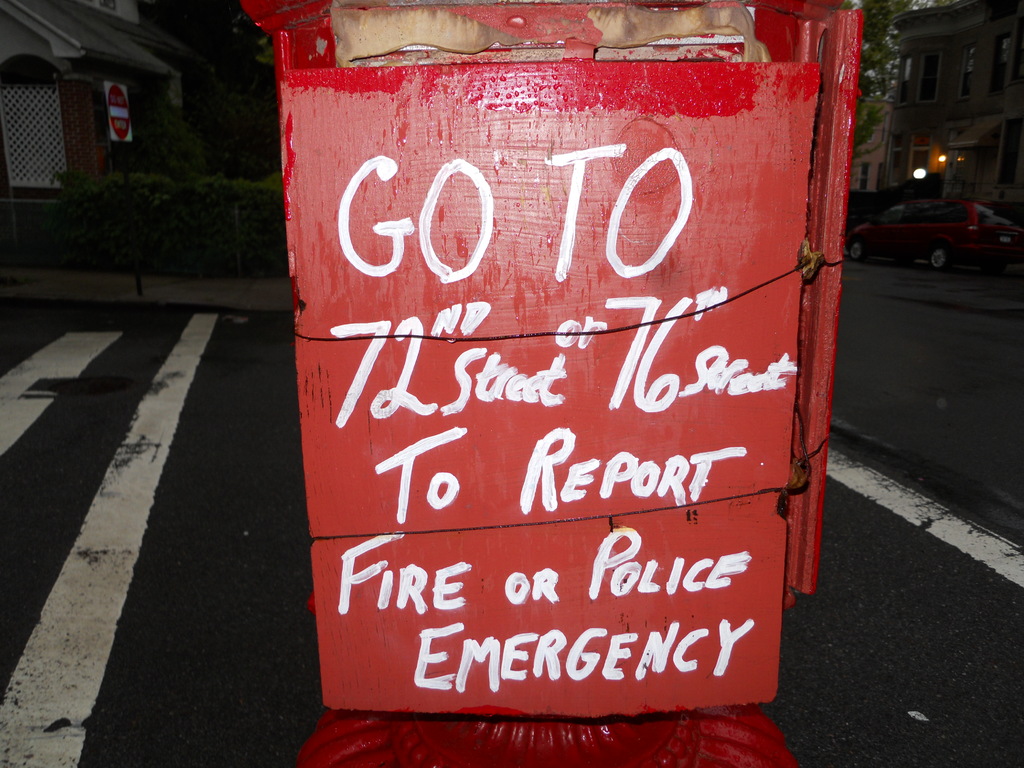 GO TO
72ND Street or 76TH Street
To REPORT
FIRE OR POLICE
EMERGENCY